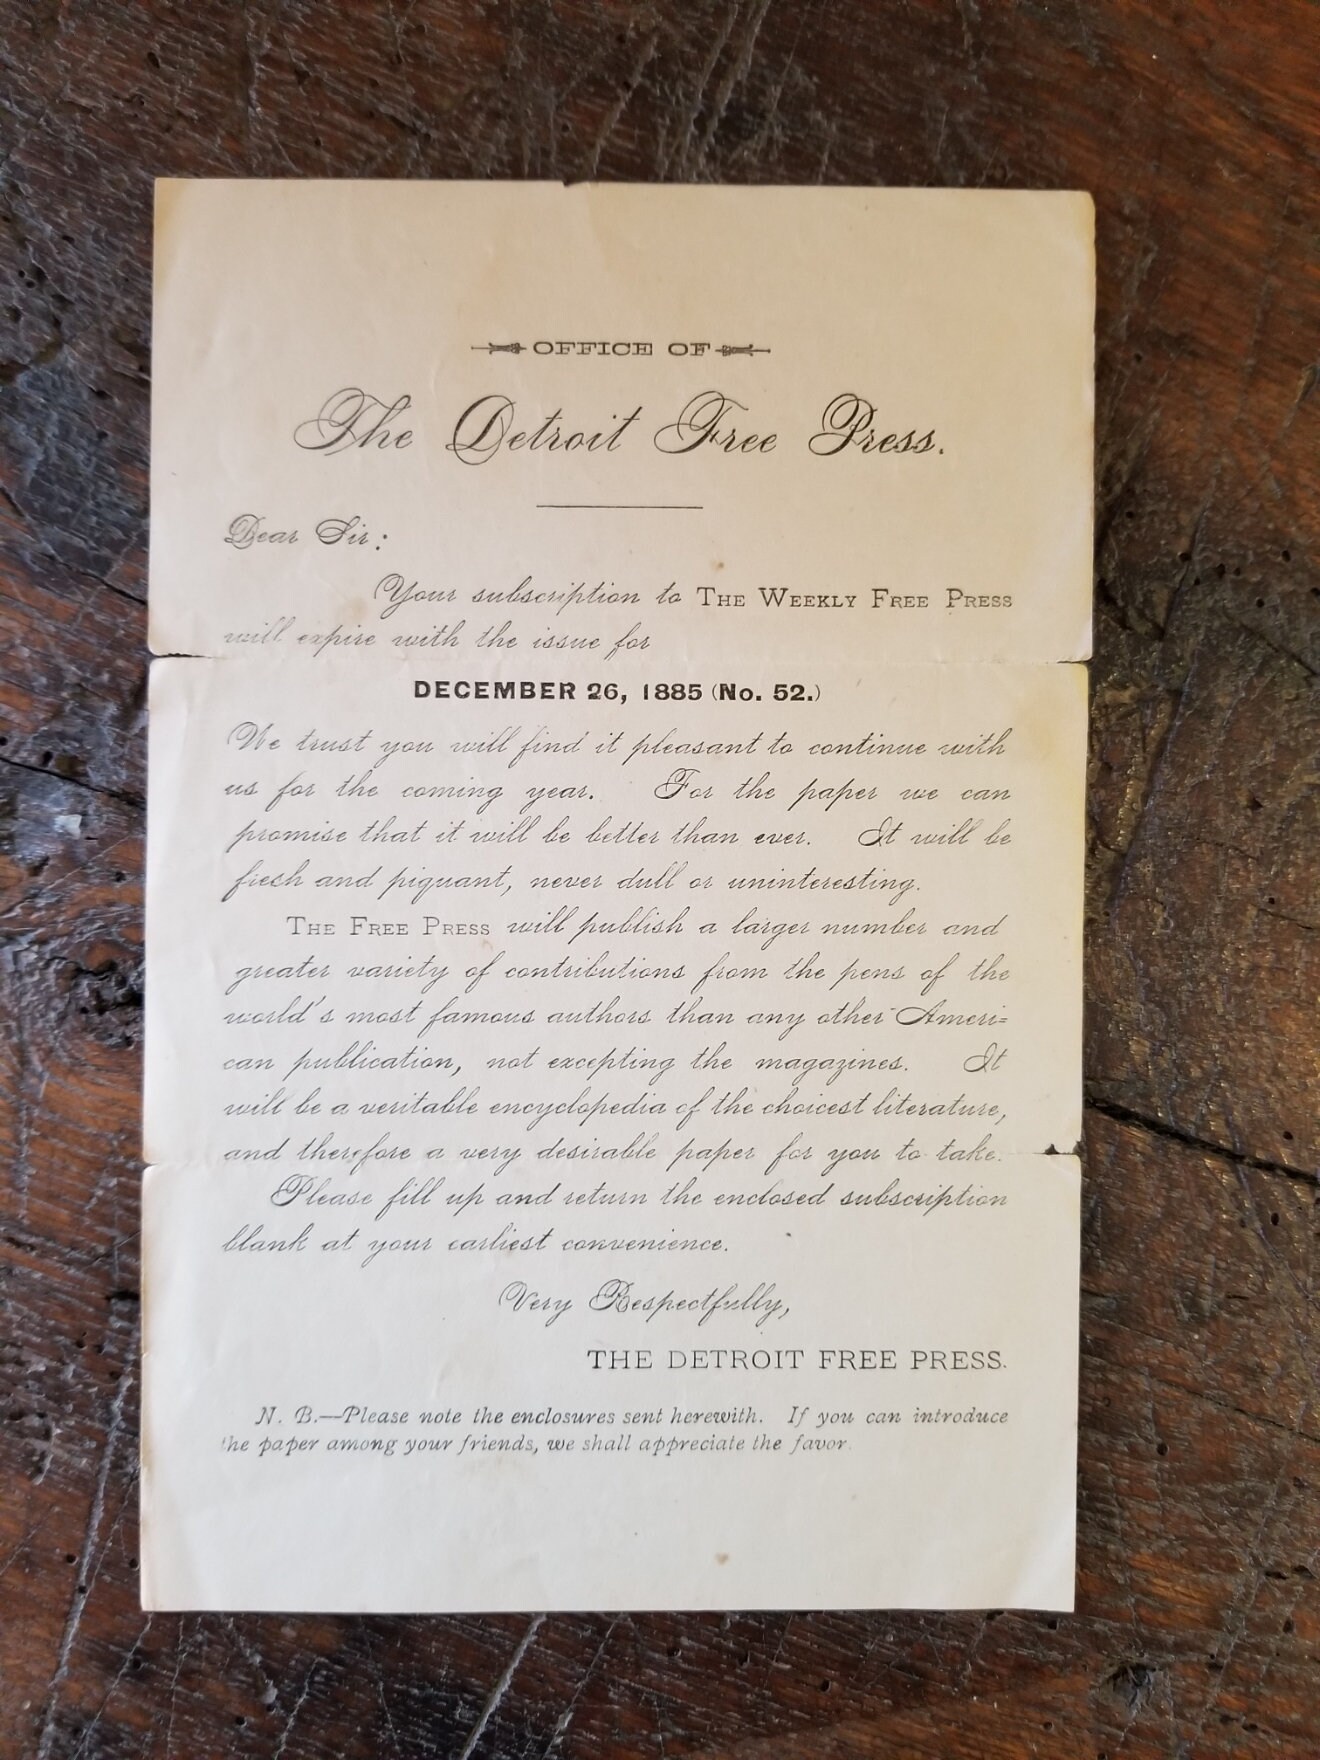 OFFICE OF
The Detroit Free Press.
Dear Sir:
Your subscription to THE WEEKLY FREE PRESS
will expire with the issue for
DECEMBER 26, 1885 (No. 52.)
We trust you will find it pleasant to continue with
us for the coming year. For the paper we can
promise that it will be better than ever. It will be
fresh and piquant, never dull or uninteresting.
THE FREE PRESS will publish a larger number and
greater variety of contributions from the pens of the
world's most famous authors than any other Ameri=
can publication, not excepting the magazines. It
will be a veritable encyclopedia of the choicest literature,
and therefore a very desirable paper for you to take.
Please fill up and return the enclosed subscription
blank at your earliest convenience.
Very Respectfully,
THE DETROIT FREE PRESS.
N. B.—Please note the enclosures sent herewith. If you can introduce
the paper among your friends, we shall appreciate the favor